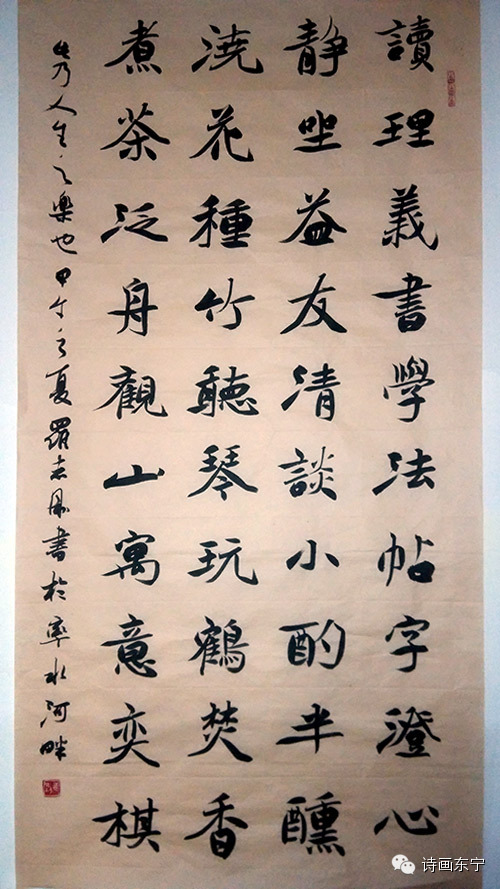 讀理義書學法帖字澄心
靜坐益友清談小酌半醺
澆花種竹聽琴玩鶴焚香
煮茶泛舟觀山寓意奕棋
此乃人生之樂也甲午之夏羅志 書於率水河畔
诗画东宁